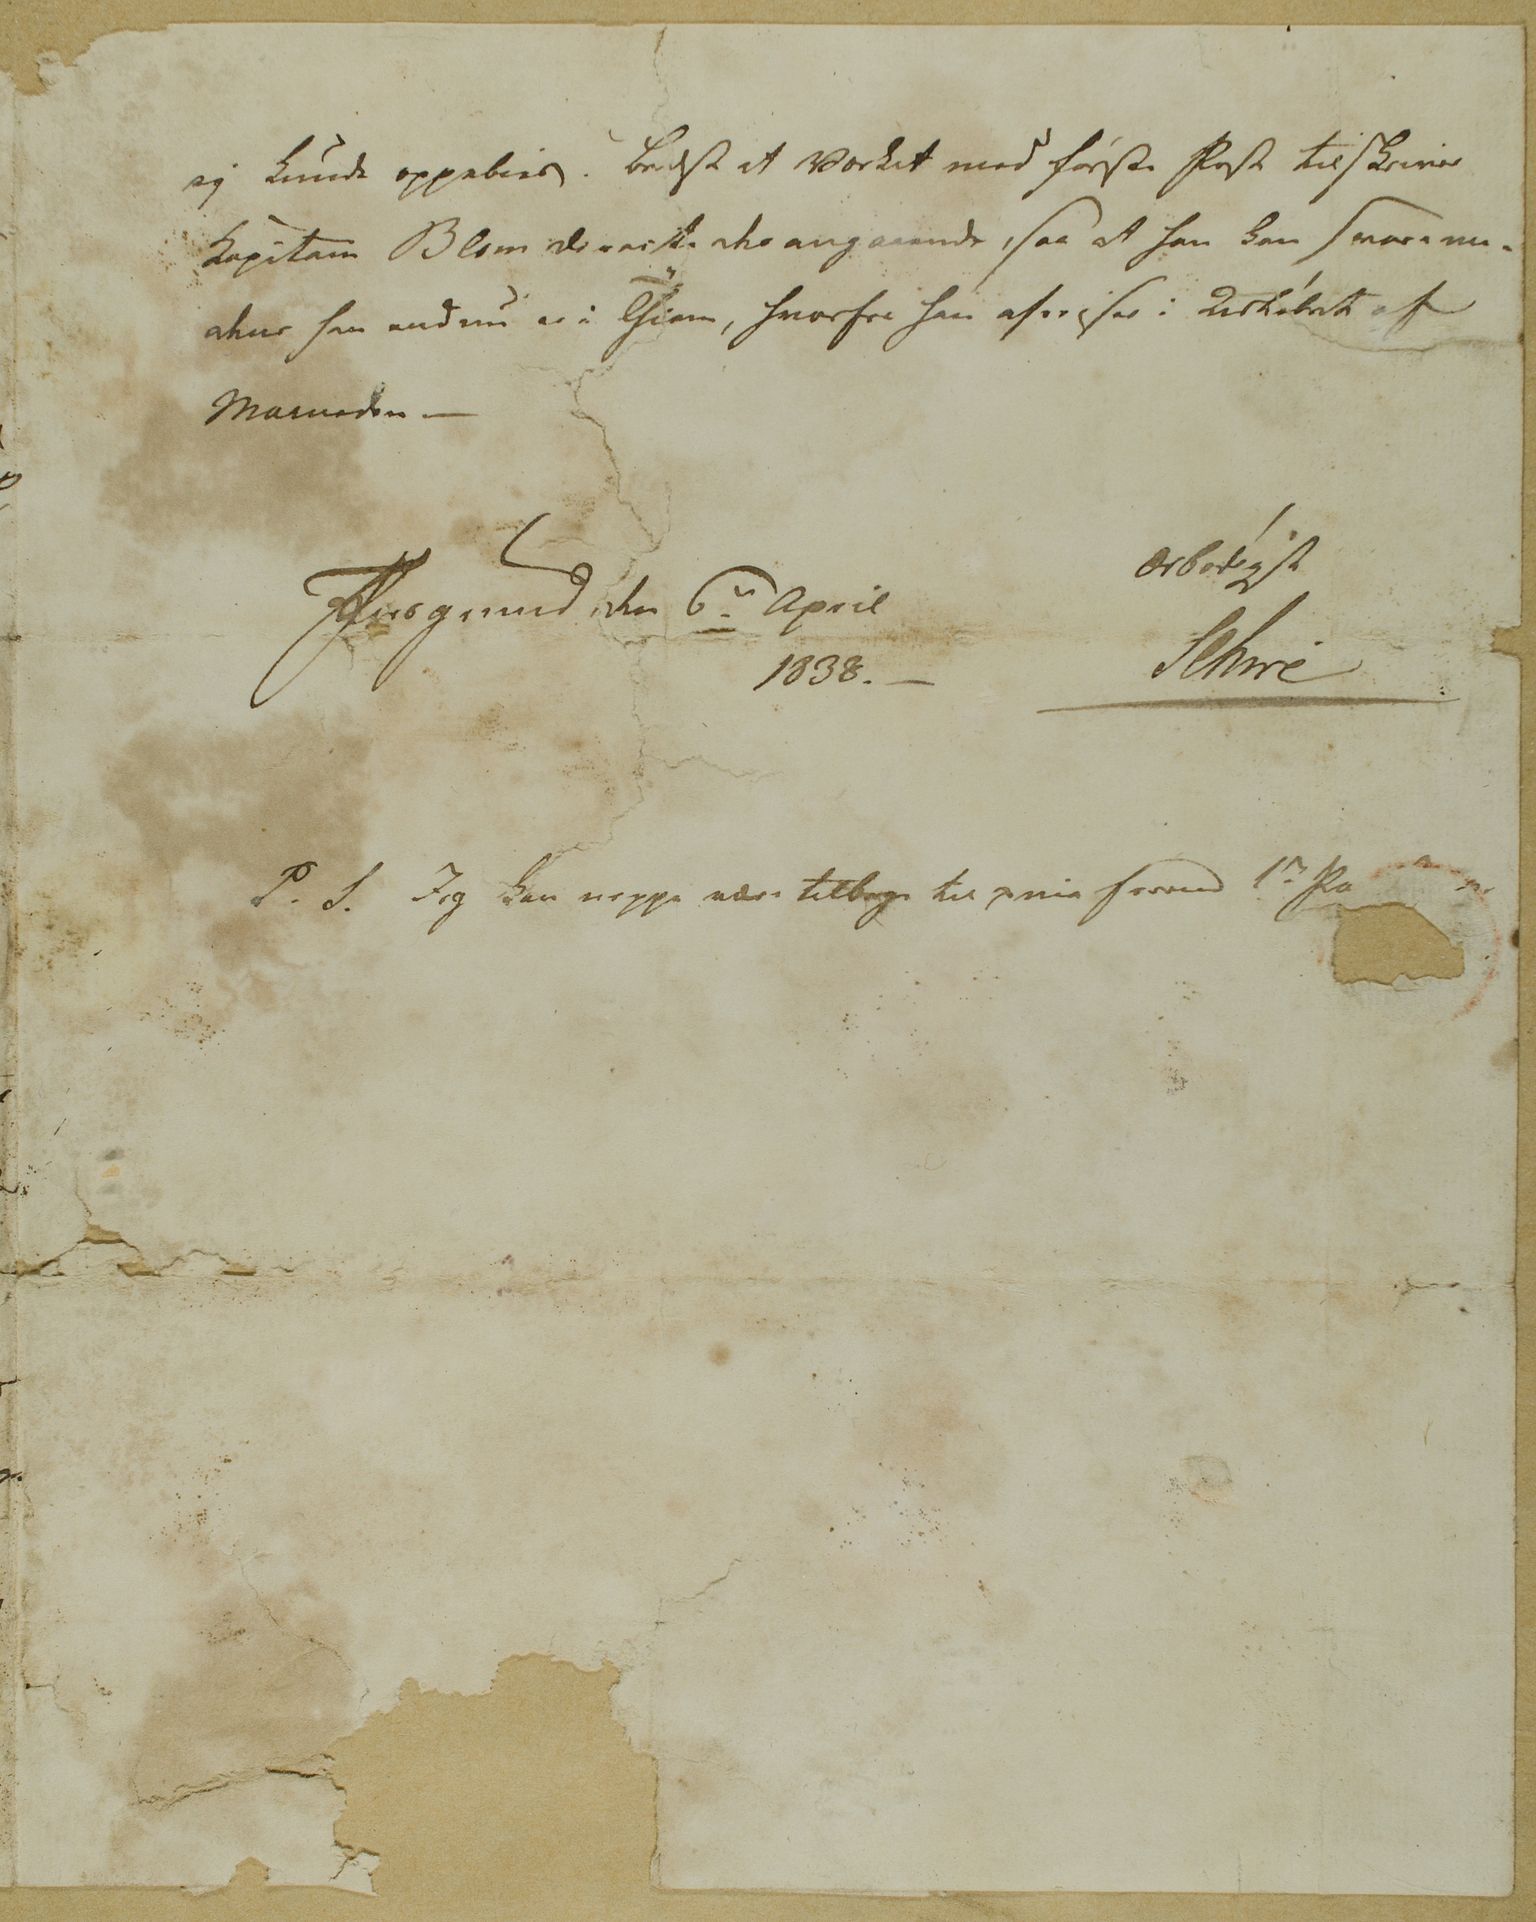 ej kunde oppebies. Bedst at Værket med første Post tilskriver
Kapitain Blom derangaaende, saa at han kan svare me-
dens han endnu er i Thiem, hvorfra han afreiser i Udløbet af
Maaneden. —
ærbødigst
den 6te April
1838. —
P. S. Jeg kan neppe være tilbage til forend 1ste